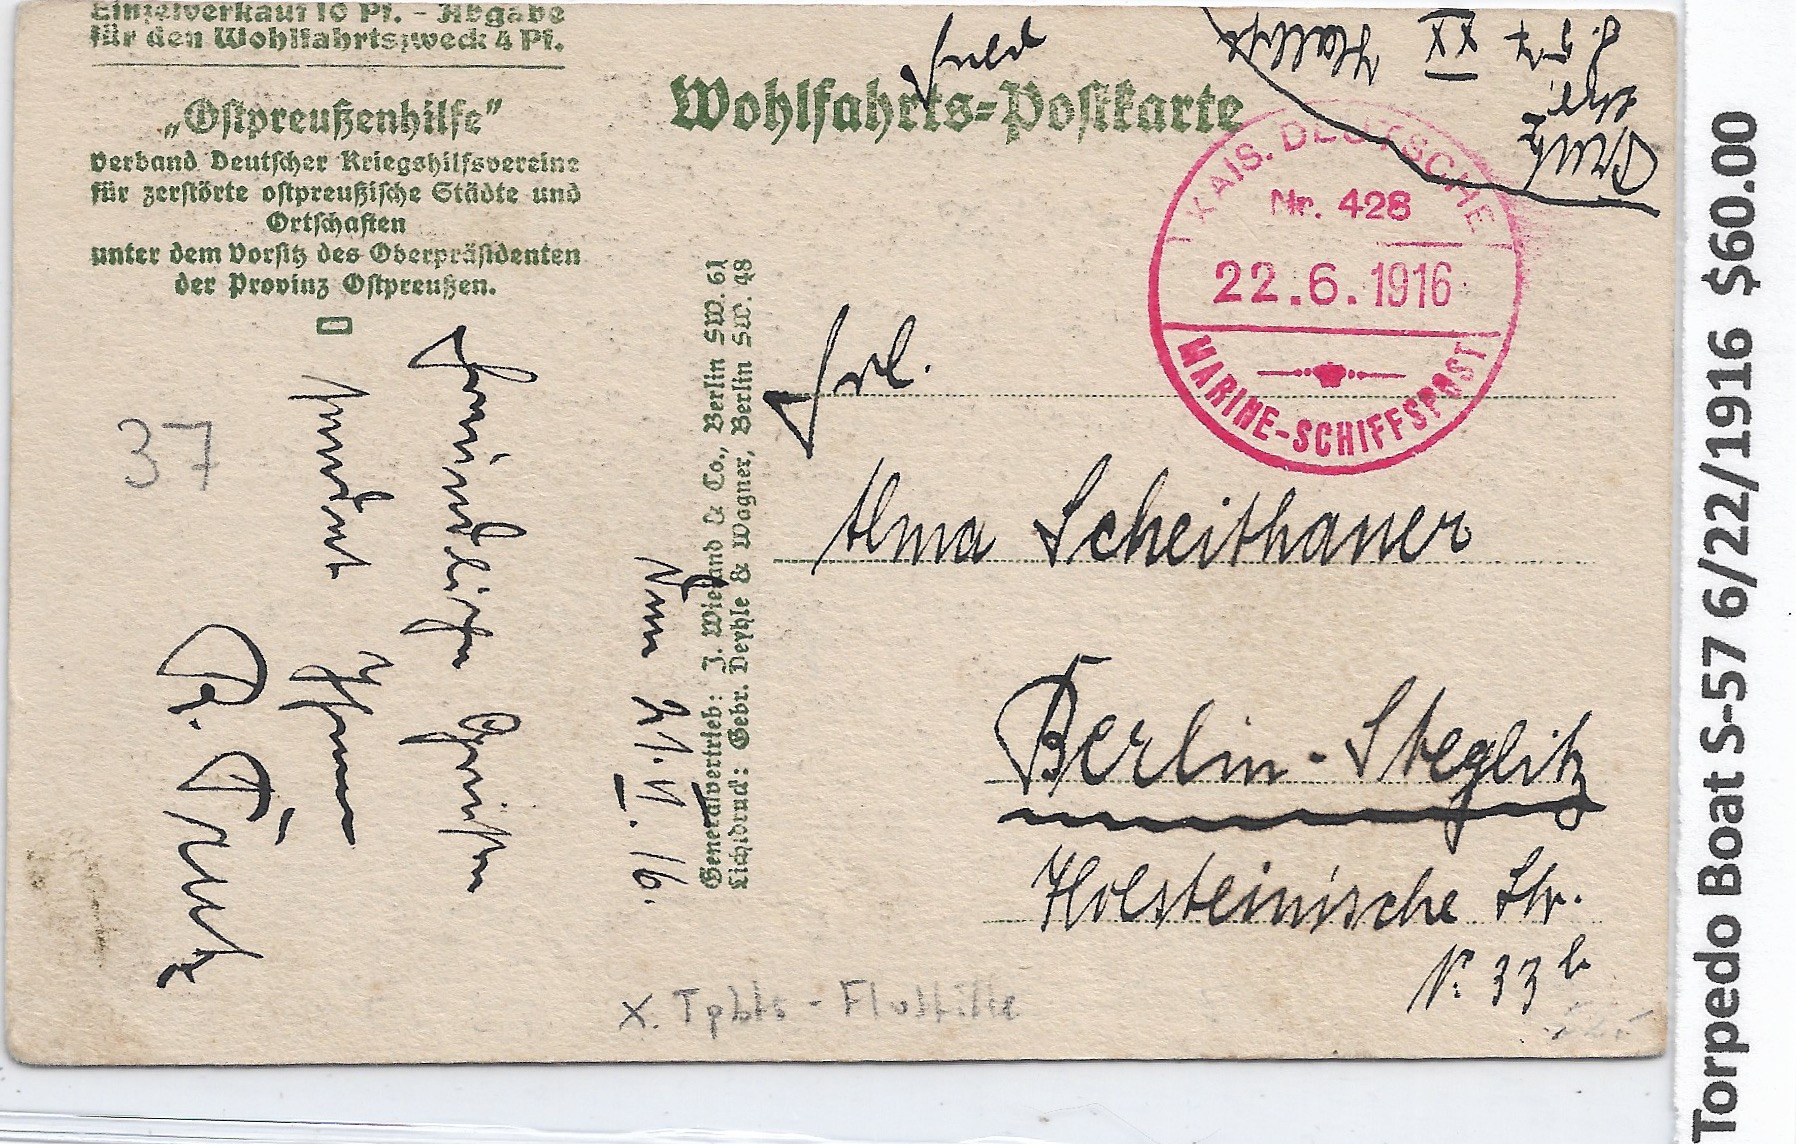 Einzelverkauf 10 Pf. – Abgabe
für den Wohlfahrtszweck 4 Pf.
„Ostpreußenhilfe”
Verband Deutscher Kriegshilfsvereine
für zerstörte ostpreußische Städte und
Ortschaften
unter dem Vorsitz des Oberpräsidenten
der Provinz Ostpreußen.
Wohlfahrts-Postkarte
S. 57
KAIS. DEUTSCHE
Nr. 428
22.6.1916
MARINE-SCHIFFSPOST
Frl.
Alma Scheithauer
Berlin-Steglitz
Holsteinische Str.
N. 33 b
Generalvertrieb: J. Wieland & Co., Berlin SW. 61
Lichtdruck: Gebr. Deyhle & Wagner, Berlin SW. 48
21.VI.16.
Freundliche Grüße
sendet Ihnen
37
X. Tpbts - Flottille
Torpedo Boat S-57 6/22/1916 $60.00